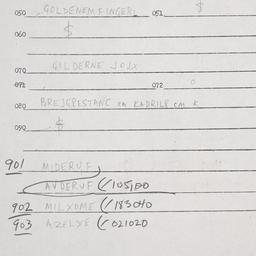 050 GOLDENEM FINGER 051 $
060 $
070 GILDERNE JOJX
071 072 0
080 BREJGRESTANC en KADRILB cm K
090 $
901 MIDERUF
AVDERUF (105100
902 MILXOME (183040
903 AZELYE (021020